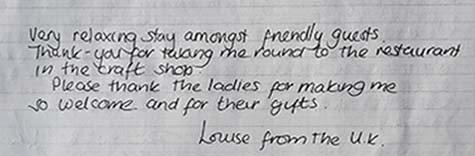 Very relaxing stay amongst friendly guests.
Thank-you for taking me round to the restaurant
in the craft shop.
Please thank the ladies for making me
so welcome and for their gifts.
Louise from the U.K.